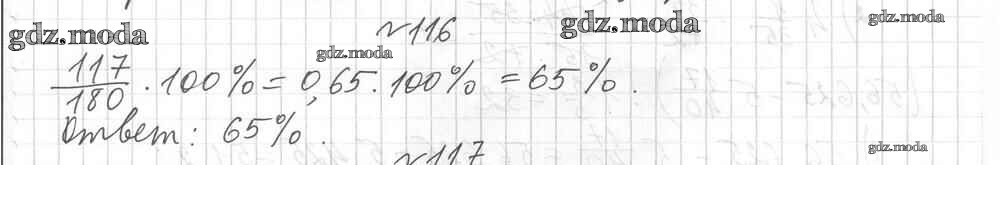 №116
gdz.moda gdz.moda gdz.moda
gdz.moda
117/180 · 100% = 0,65 · 100% = 65%.
Ответ: 65%.
gdz.moda
№117